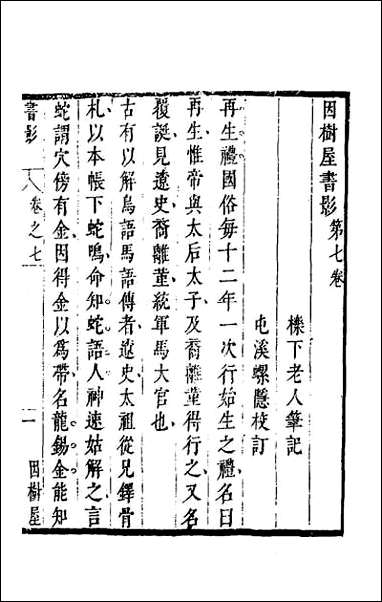 因樹屋書影第七卷
櫟下老人筆記
屯溪螺隱校訂
再生禮國俗每十二年一次行始生之禮名曰
再生惟帝與太后太子及裔離堇得行之又名
覆誕見遼史裔離堇統軍馬大官也
古有以解鳥語馬語傳者遼史太祖從兄鐸骨
札以本帳下蛇鳴命知蛇語人神速姑解之言
蛇謂穴傍有金因得金以爲帶名龍錫金能知
書影 卷之七 一 因樹屋